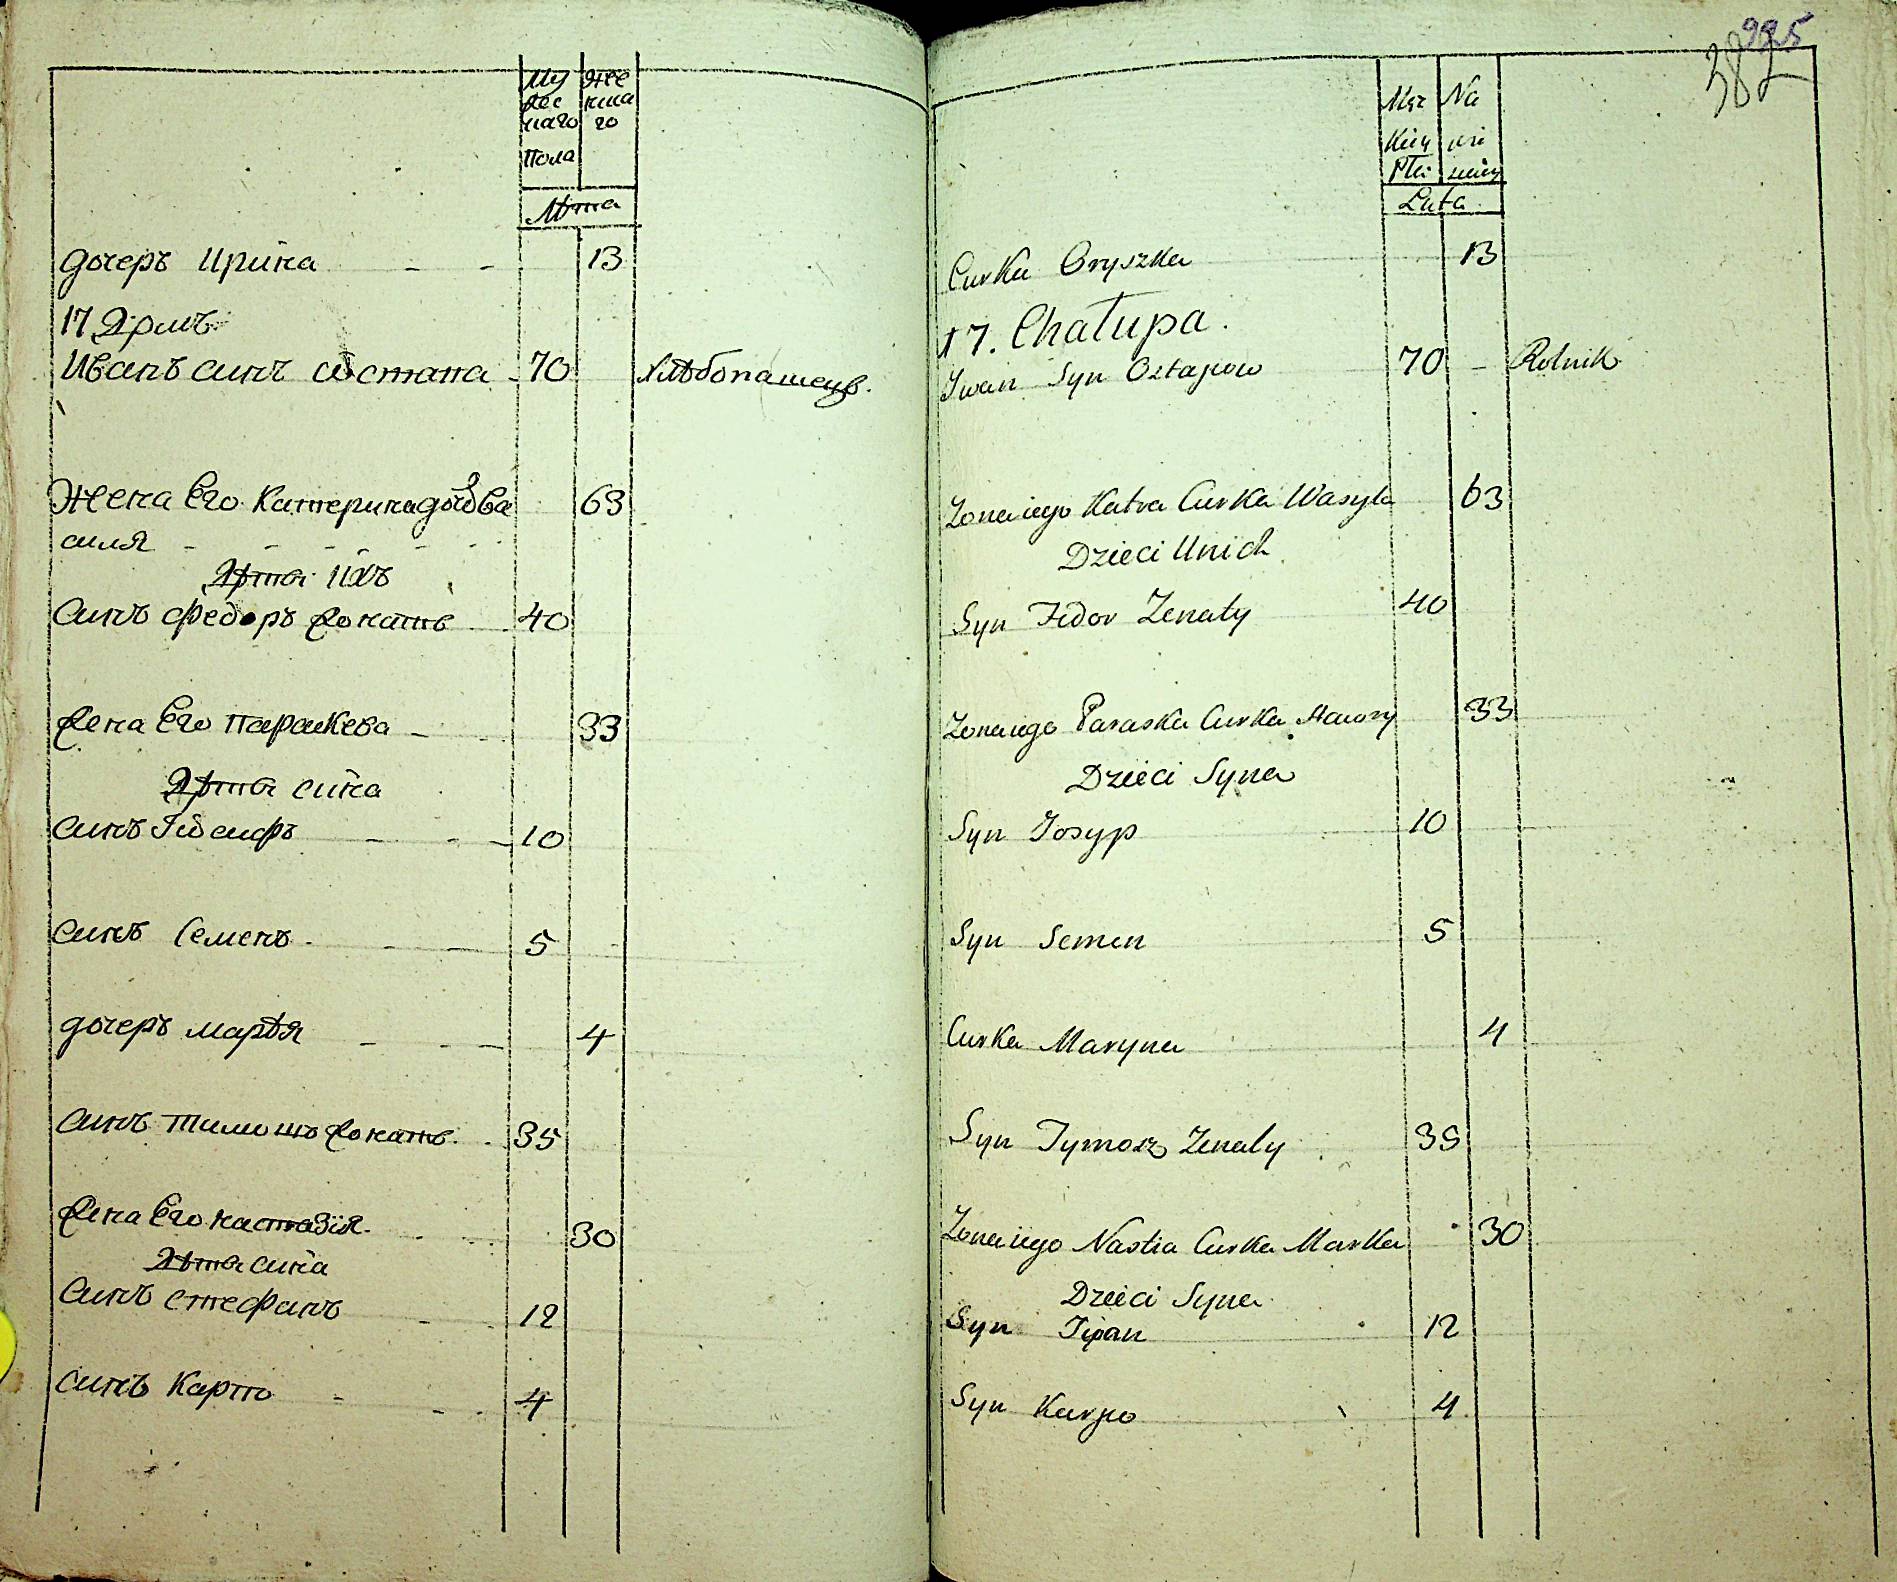 Му Же
жес нска
каго го
пола
Лѣта
дочеръ Ирина 13
17 Домъ
Иванъ синъ Остапа 70 Хлѣбопашецъ.
Жена Его Катерина дочь Ва 63
силя
Дѣти ихъ
синъ Федоръ жонатъ 40
жена Его параскева 33
Дѣти сина
синъ Іосифъ 10
синъ Семенъ 5
дочеръ марья 4
синъ тимошъ жонатъ 35
жена Его настазія 30
Дѣти сина
синъ стефанъ 12
синъ Карпо 4
995
382
Męz Na
Kiey
Płci
Lata
Curka Oryszka 13
17. Chałupa.
Iwan Syn Ostapow 70 - Rolnik
Zona iego Katra Curka Wasyla 63
Dzieci Unich
Syn Fedor Zenaty 40
Zona iego Paraska Curka 33
Dzieci Syna
Syn Josyp 10
Syn Semen 5
Curka Maryna 4
Syn Tymosz Zenaty 35
Zona iego Nastia Curka Marka 30
Dzieci Syna
Syn 12
Syn Karpo 4